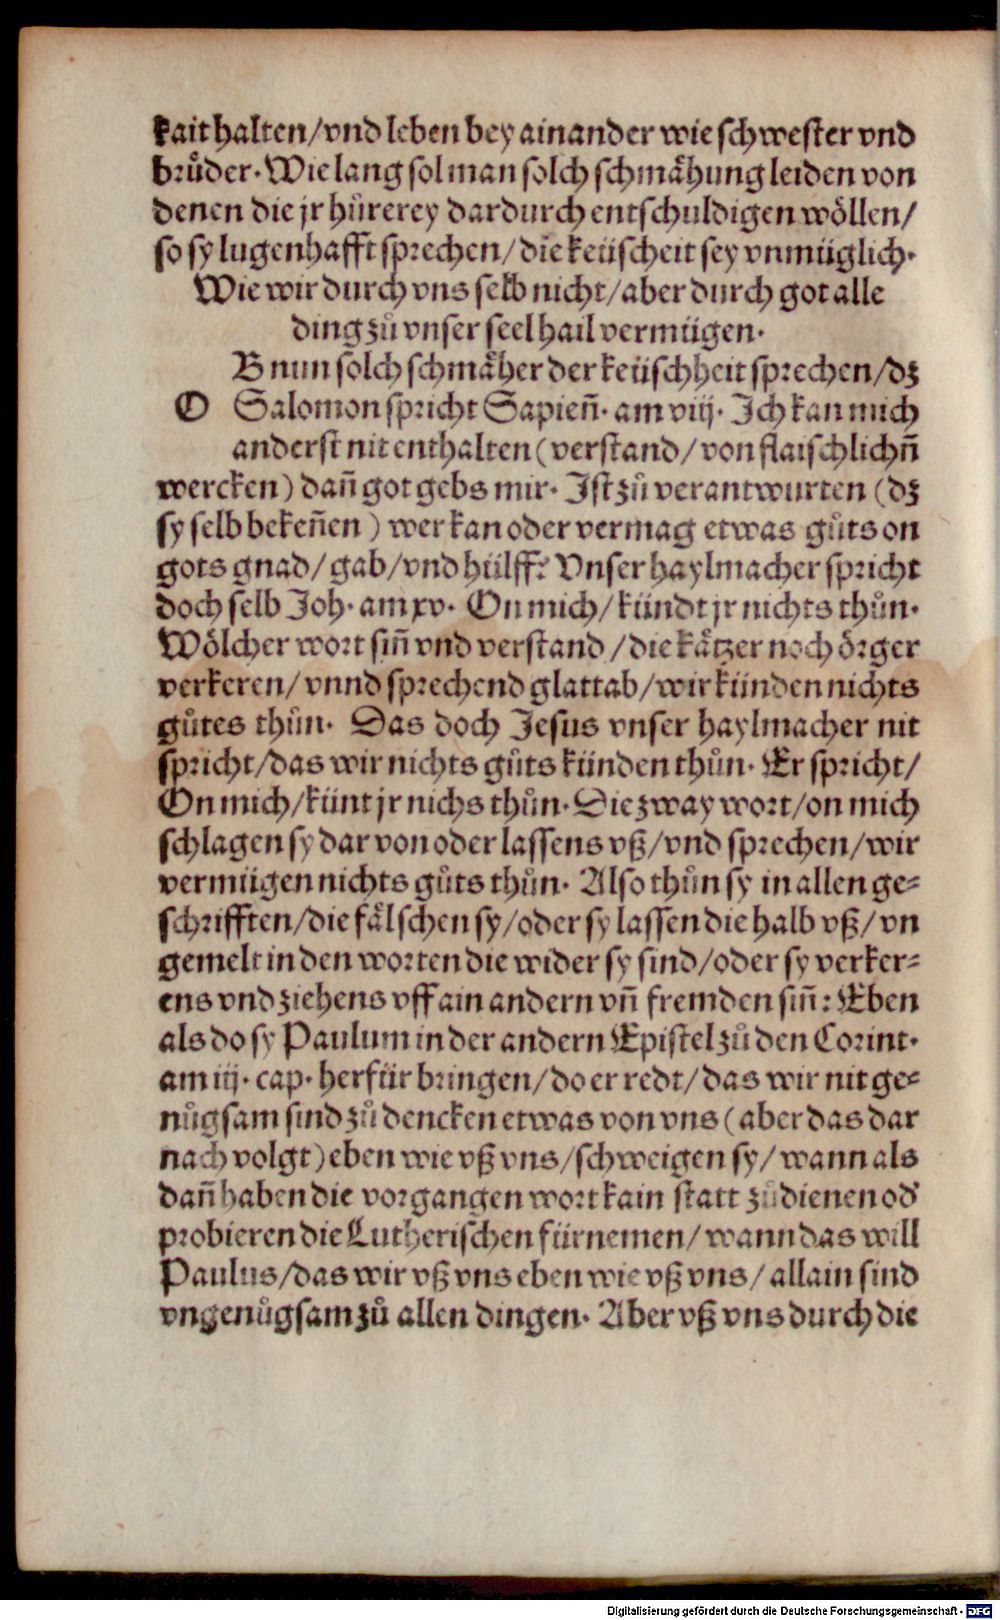 kait halten/vnd leben bey ainander wie schwester vnd
brůder. Wie lang sol man solch schmähung leiden von
denen die jr hůrerey dardurch entschuldigen wöllen/
so sy lugenhafft sprechen/die keüscheit sey vnmüglich.
Wie wir durch vns selb nicht/aber durch got alle
ding zů vnser seel hail vermügen.
B nun solch schmäher der keüschheit sprechen/dz
O Salomon spricht Sapien̄. am viij. Ich kan mich
anderst nit enthalten (verstand/von flaischlichn̄
wercken) dan̄ got gebs mir. Ist zů verantwurten (dz
sy selb beken̄en) wer kan oder vermag etwas gůts on
gots gnad/gab/vnd hülff? Vnser haylmacher spricht
doch selb Joh. am xv. On mich/kündt jr nichts thůn.
Wölcher wort sin̄ vnd verstand/die kätzer noch örger
verkeren/vnnd sprechend glattab/wir künden nichts
gůtes thůn. Das doch Jesus vnser haylmacher nit
spricht/das wir nichts gůts künden thůn. Er spricht/
On mich/künt jr nichs thůn. Die zway wort/on mich
schlagen sy dar von oder lassens vß/vnd sprechen/wir
vermügen nichts gůts thůn. Also thůn sy in allen ge⸗
schrifften/die fälschen sy/oder sy lassen die halb vß/vn
gemelt in den worten die wider sy sind/oder sy verker⸗
ens vnd ziehens vff ain andern vn̄ fremden sin̄: Eben
als do sy Paulum in der andern Epistel zů den Corint.
am iij. cap. herfür bringen/do er redt/das wir nit ge⸗
nůgsam sind zů dencken etwas von vns (aber das dar
nach volgt) eben wie vß vns/schweigen sy/wann als
dan̄ haben die vorgangen wort kain statt zů dienen od'
probieren die Lutherischen fürnemen/wann das will
Paulus/das wir vß vns eben wie vß vns/allain sind
vngenůgsam zů allen dingen. Aber vß vns durch die
Digitalisierung gefördert durch die Deutsche Forschungsgemeinschaft - DFG